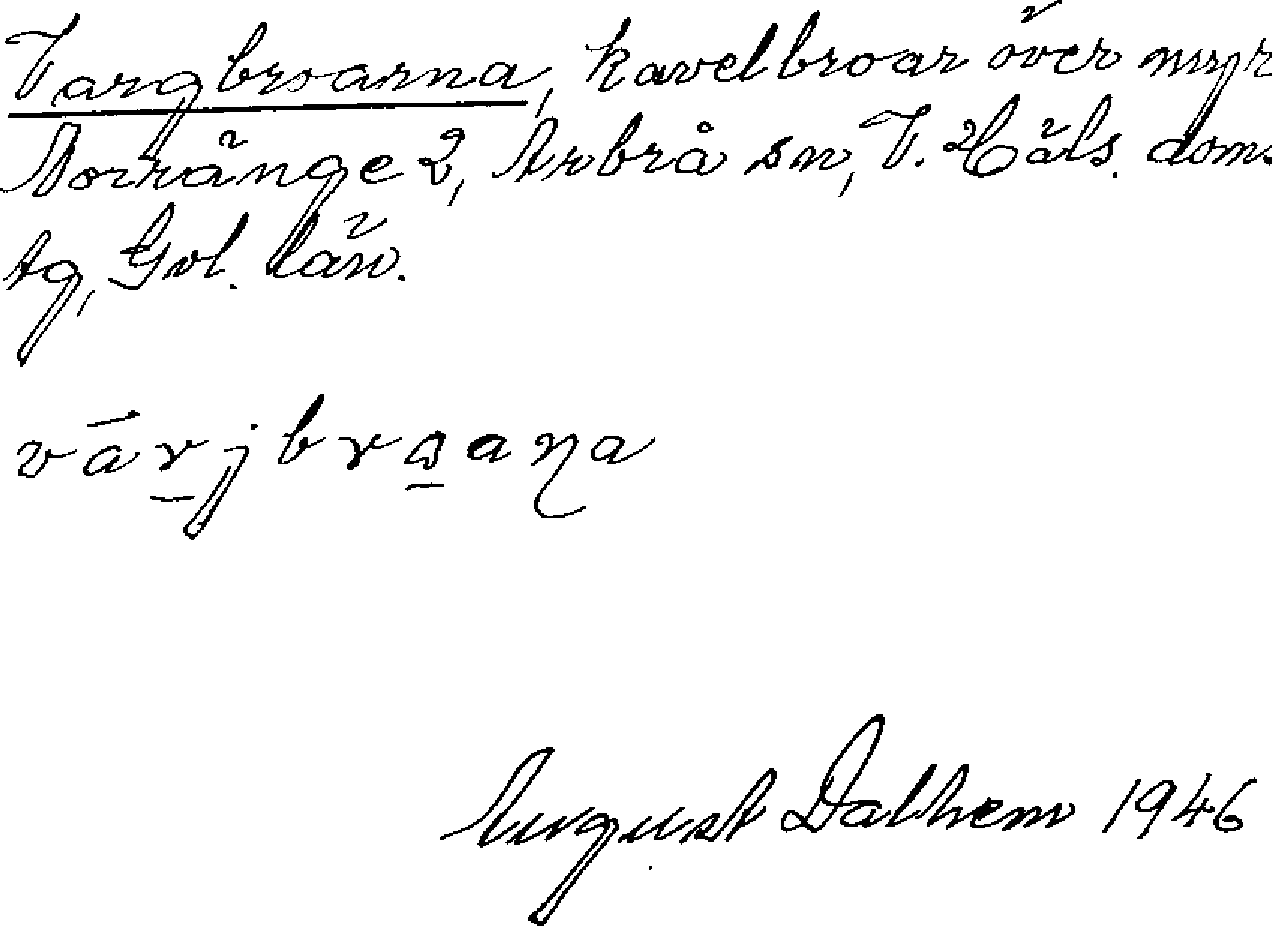 Vargbroarna, kavelbroar över myr
Norränge 2, Arbrå sn, V. Häls. doms
tg, Gvl. län.
August Dalhem 1946